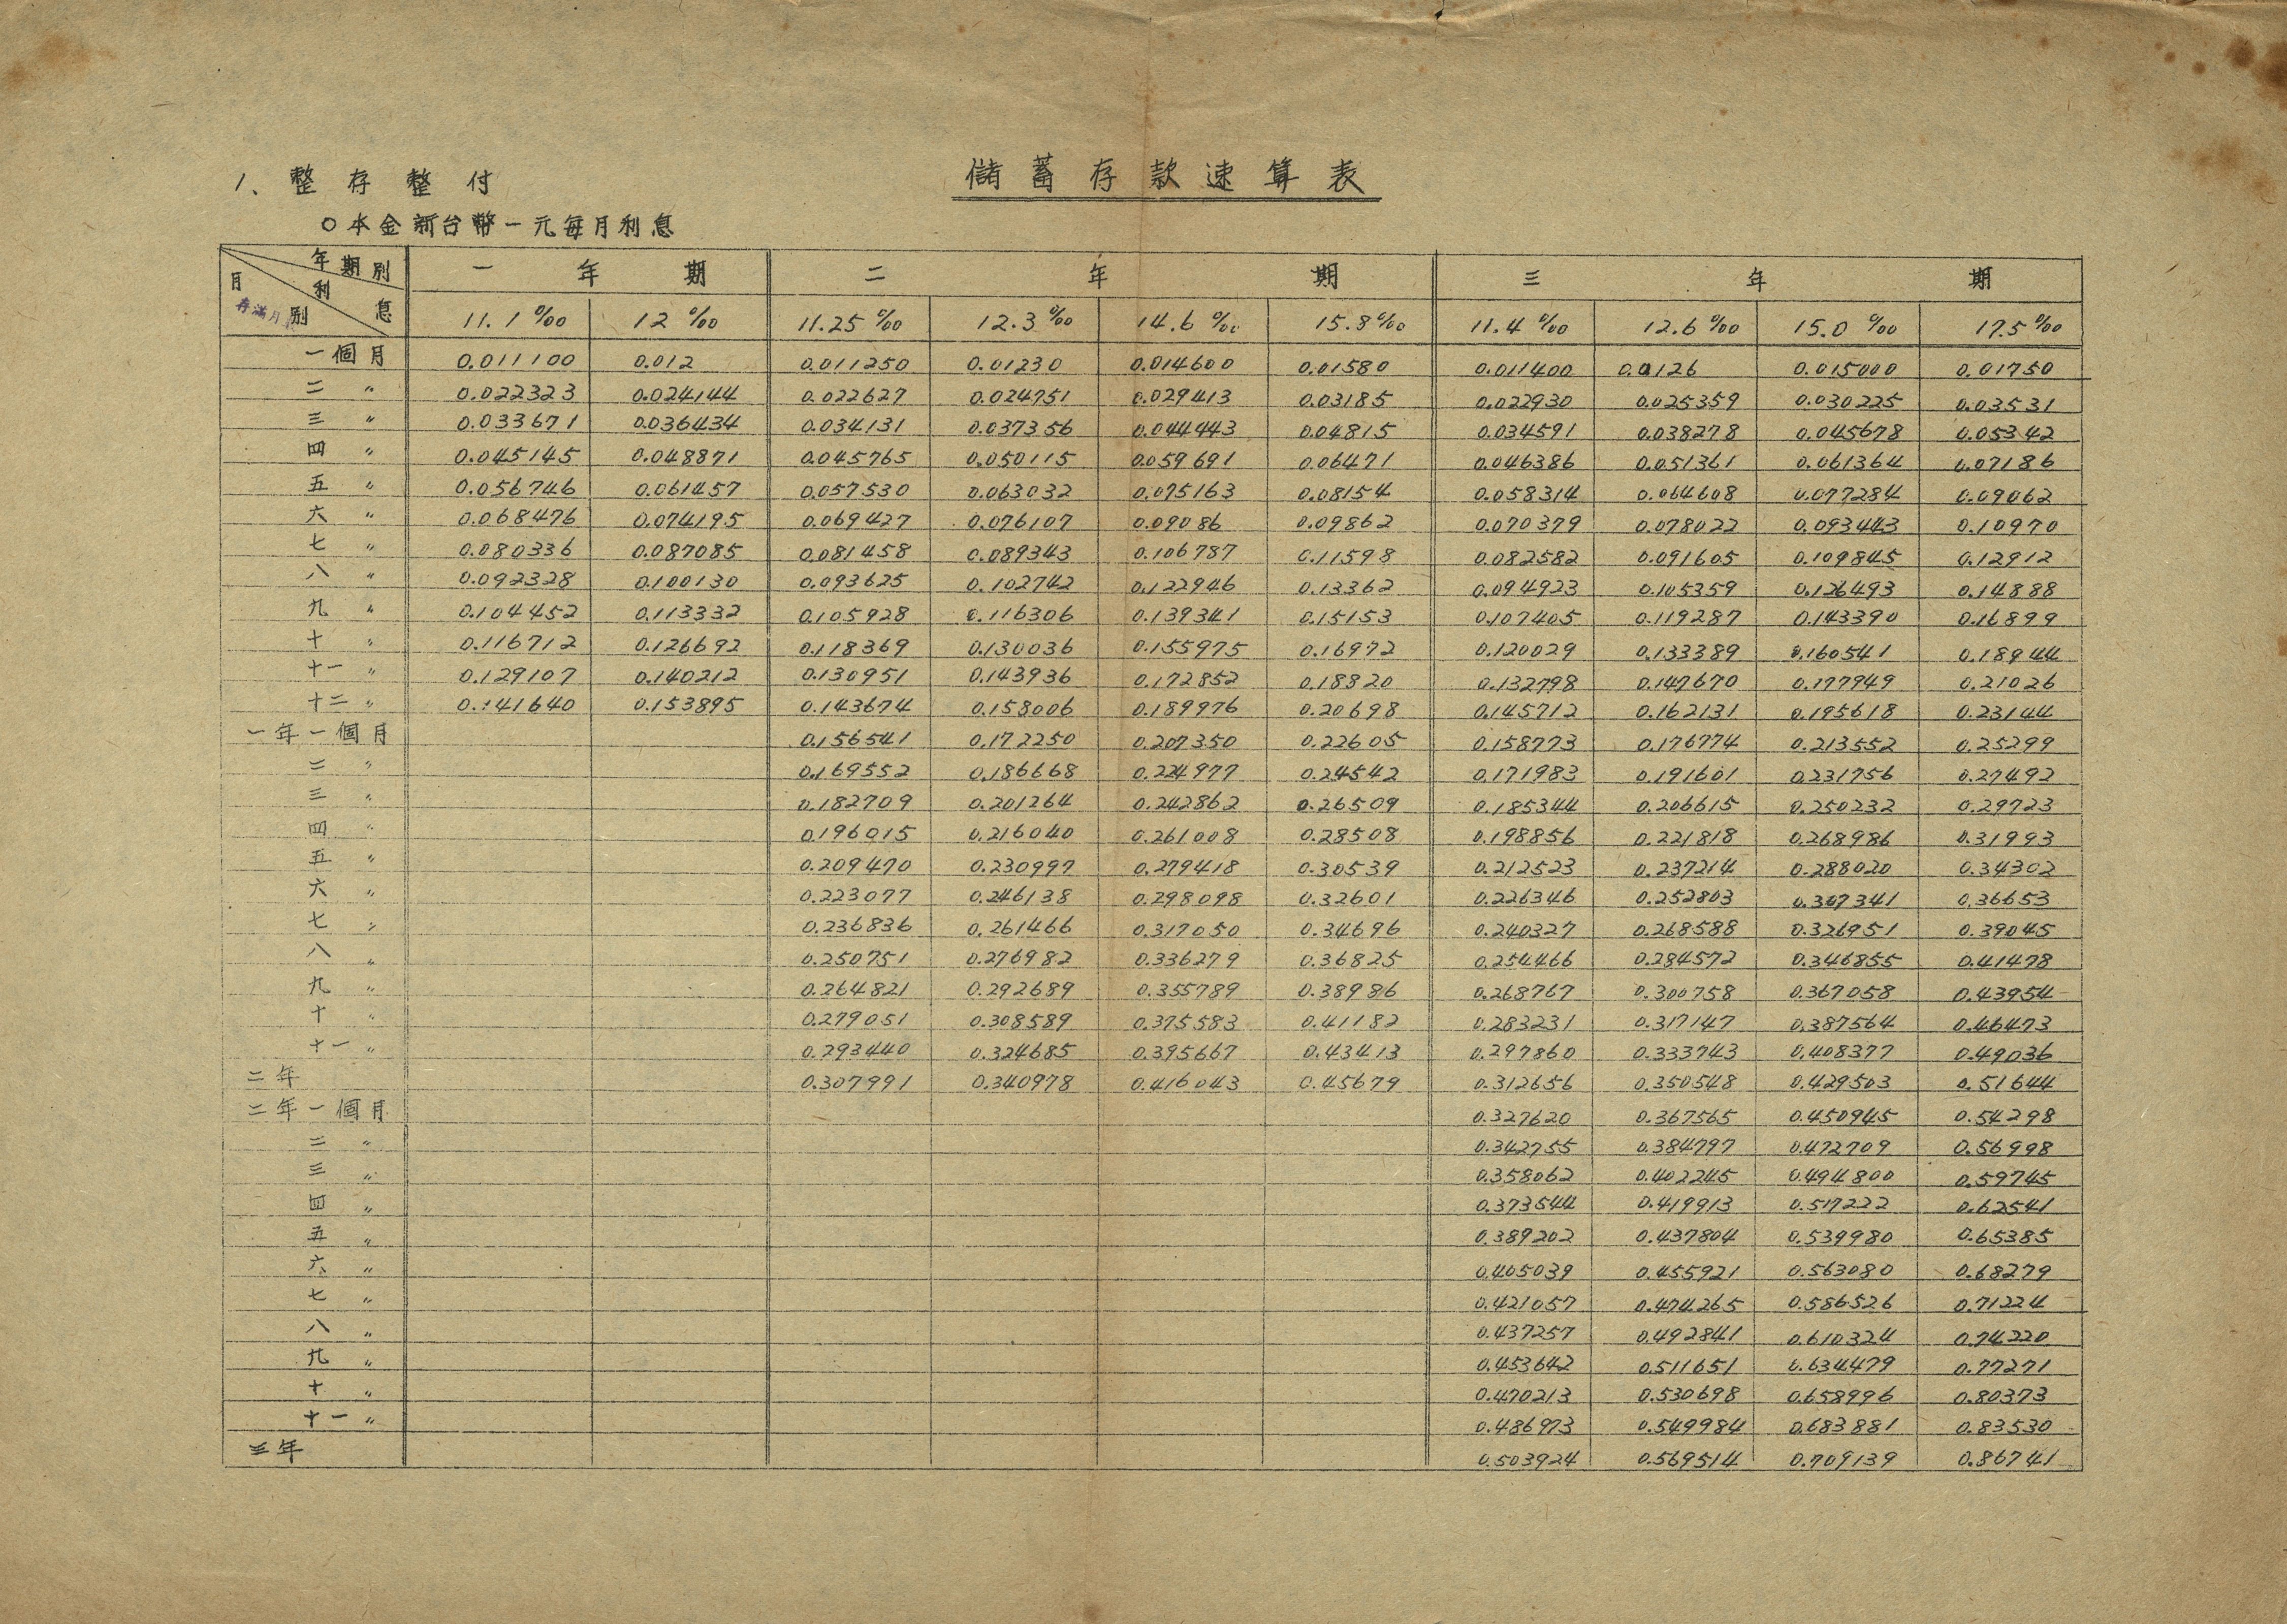 儲蓄存款速算表
1、整存整付
○本金新台幣一元每月利息
年期別 一年期 二年期 三年期
月 利息
存滿月 別 11.1‰ 12‰ 11.25‰ 12.3‰ 14.6‰ 15.8‰ 11.4‰ 12.6‰ 15.0‰ 17.5‰
一個月 0.011100 0.012 0.011250 0.01230 0.014600 0.01580 0.011400 0.0126 0.015000 0.01750
二 〃 0.022323 0.024144 0.022627 0.024751 0.029413 0.03185 0.022930 0.025359 0.030225 0.03531
三 〃 0.033671 0.036434 0.034131 0.037356 0.044443 0.04815 0.034591 0.038278 0.045678 0.05342
四 〃 0.045145 0.048871 0.045765 0.050115 0.059691 0.06471 0.046386 0.051361 0.061364 0.07186
五 〃 0.056746 0.061457 0.057530 0.063032 0.075163 0.08154 0.058314 0.064608 0.077284 0.09062
六 〃 0.068476 0.074195 0.069427 0.076107 0.09086 0.09862 0.070379 0.078022 0.093443 0.10970
七 〃 0.080336 0.087085 0.081458 0.089343 0.106787 0.11598 0.082582 0.091605 0.109845 0.12912
八 〃 0.092328 0.100130 0.093625 0.102742 0.122946 0.13362 0.094923 0.105359 0.126493 0.14888
九 〃 0.104452 0.113332 0.105928 0.116306 0.139341 0.15153 0.107405 0.119287 0.143390 0.16899
十 〃 0.116712 0.126692 0.118369 0.130036 0.155975 0.16972 0.120029 0.133389 0.160541 0.18944
十一 〃 0.129107 0.140212 0.130951 0.143936 0.172852 0.18820 0.132798 0.147670 0.177949 0.21026
十二 〃 0.141640 0.153895 0.143674 0.158006 0.189976 0.20698 0.145712 0.162131 0.195618 0.23144
一年一個月 0.156541 0.172250 0.207350 0.22605 0.158773 0.176774 0.213552 0.25299
二 〃 0.169552 0.186668 0.224977 0.24542 0.171983 0.191601 0.231756 0.27492
三 〃 0.182709 0.201264 0.242862 0.26509 0.185344 0.206615 0.250232 0.29723
四 〃 0.196015 0.216040 0.261008 0.28508 0.198856 0.221818 0.268986 0.31993
五 〃 0.209470 0.230997 0.279418 0.30539 0.212523 0.237214 0.288020 0.34302
六 〃 0.223077 0.246138 0.298098 0.32601 0.226346 0.252803 0.307341 0.36653
七 〃 0.236836 0.261466 0.317050 0.34696 0.240327 0.268588 0.326951 0.39045
八 〃 0.250751 0.276982 0.336279 0.36825 0.254466 0.284572 0.346855 0.41478
九 〃 0.264821 0.292689 0.355789 0.38986 0.268767 0.300758 0.367058 0.43954
十 〃 0.279051 0.308589 0.375583 0.41182 0.283231 0.317147 0.387564 0.46473
十一 〃 0.293440 0.324685 0.395667 0.43413 0.297860 0.333743 0.408377 0.49036
二年 0.307991 0.340978 0.416043 0.45679 0.312656 0.350548 0.429503 0.51644
二年一個月 0.327620 0.367565 0.450945 0.54298
二 〃 0.342755 0.384797 0.472709 0.56998
三 〃 0.358062 0.402245 0.494800 0.59745
四 〃 0.373544 0.419913 0.517222 0.62541
五 〃 0.389202 0.437804 0.539980 0.65385
六 〃 0.405039 0.455921 0.563080 0.68279
七 〃 0.421057 0.474265 0.586526 0.71224
八 〃 0.437257 0.492841 0.610324 0.74220
九 〃 0.453642 0.511651 0.634479 0.77271
十 〃 0.470213 0.530698 0.658996 0.80373
十一 〃 0.486973 0.549984 0.683881 0.83530
三年 0.503924 0.569514 0.709139 0.86741